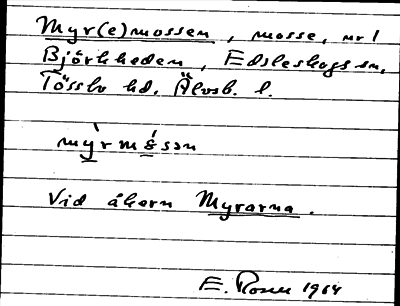 Myr(e)mossen, mosse, nr 1
Björkheden, Edsleskogs sn,
Tössbo hd, Älvsb. l.
mỳrmɷ́sən
Vid åkern Myrarna.
E. Rosen 1964